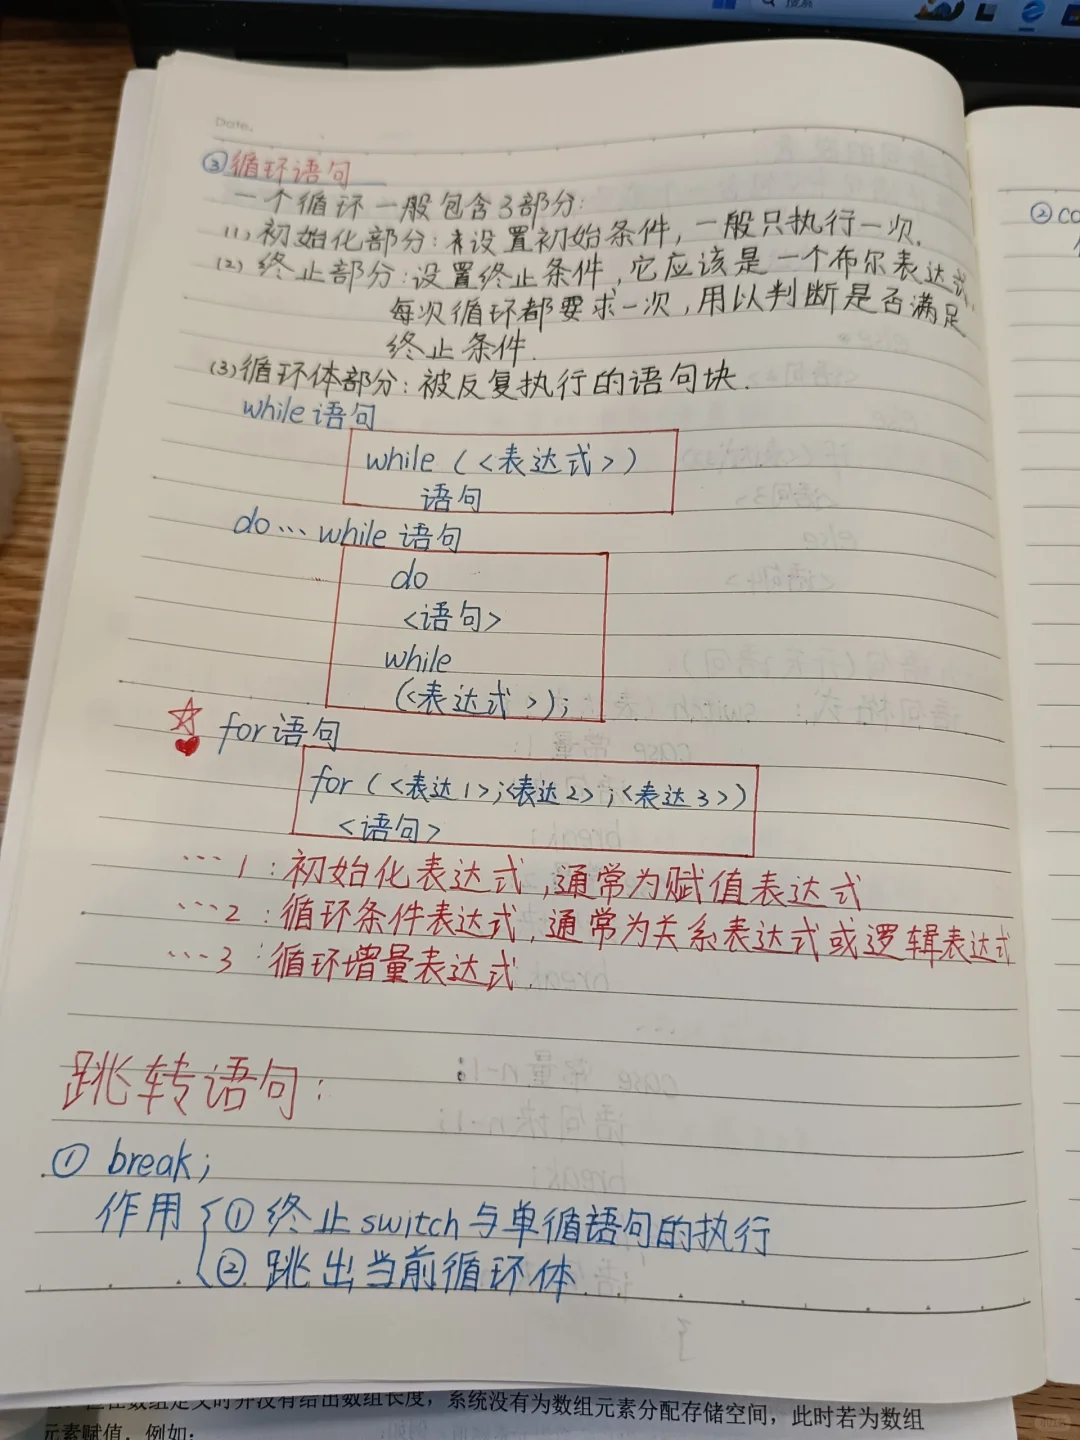 搜索
Date.
③循环语句
一个循环一般包含3部分:
(1)初始化部分:设置初始条件,一般只执行一次.
(2)终止部分:设置终止条件,它应该是一个布尔表达式,
每次循环都要求一次,用以判断是否满足
终止条件.
(3)循环体部分:被反复执行的语句块.
while语句
while (<表达式>)
语句
do…while语句
do
<语句>
while
(<表达式>);
for语句
for (<表达1>;<表达2>;<表达3>)
<语句>
…1:初始化表达式,通常为赋值表达式
…2:循环条件表达式,通常为关系表达式或逻辑表达式
…3:循环增量表达式.
跳转语句:
① break;
作用 ①终止switch与单循语句的执行
②跳出当前循环体.
②co
数组定义时并没有给出数组长度,系统没有为数组元素分配存储空间,此时若为数组
元素赋值,例如: